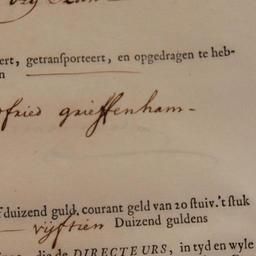 ert, getransporteert, en opgedragen te heb-
n
fried grieffenham-
duizend guld. courant geld van 20 stuiv. 't stuk
vijftien Duizend guldens
die de DIRECTEURS, in tyd en wyle